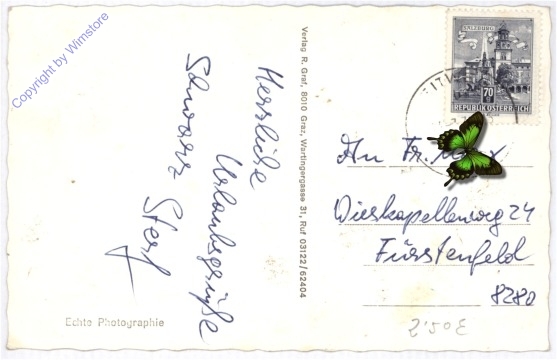 Copyright by Wimstore
Herrliche
Urlaubsgrüße
Schwarz
Verlag R. Graf, 8010 Graz, Wartingergasse 31, Ruf 03122/62404
Echte Photographie
SALZBURG
70
REPUBLIK ÖSTERREICH
An Fr.
Wieskapellenweg 24
Fürstenfeld
8280
2'50€